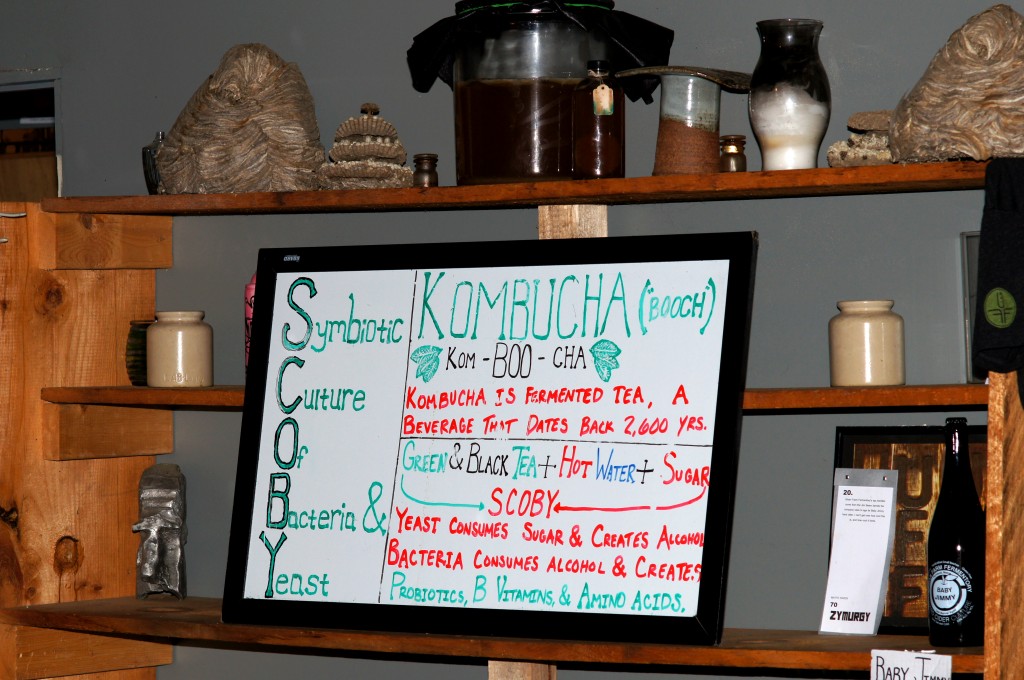 Symbiotic
Culture
Of
Bacteria &
Yeast
KOMBUCHA ("BOOCH")
KOM - BOO - CHA
KOMBUCHA IS FERMENTED TEA, A
BEVERAGE THAT DATES BACK 2,600 YRS.
GREEN & BLACK TEA + HOT WATER + SUGAR
SCOBY
YEAST CONSUMES SUGAR & CREATES ALCOHOL
BACTERIA CONSUMES ALCOHOL & CREATES
PROBIOTICS, B VITAMINS, & AMINO ACIDS.
20.
70
ZYMURGY
FERMENTORY
BABY
JIMMY
CIDER
BABY JIMMY